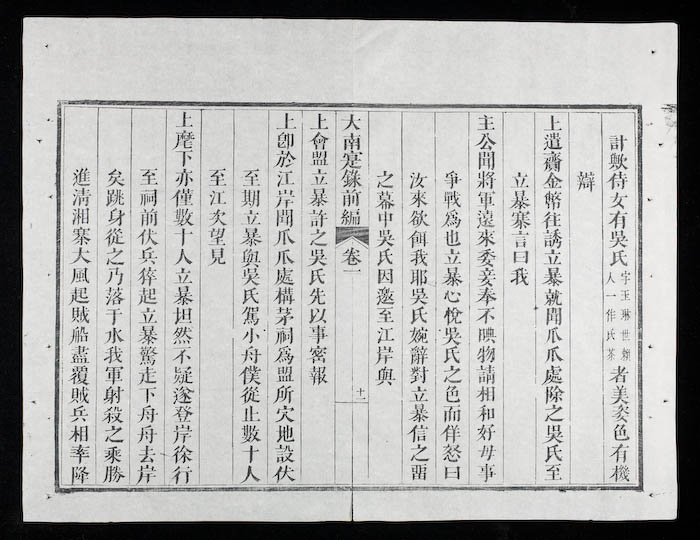 計歟侍女有吳氏字玉琳世賴人一作氏茶者美姿色有機
辯
上遣齎金幣往誘立暴就聞爪爪處除之吳氏至
立暴寨言曰我
主公聞將軍遠來委妾奉不腆物請相和好毋事
爭戰爲也立暴心悅吳氏之色而佯怒曰
汝來欲餌我耶吳氏婉辭對立暴信之畱
之幕中吳氏因邀至江岸與
大南寔錄前編 卷一 十一
上會盟立暴許之吳氏先以事密報
上卽於江岸聞爪爪處構茅祠爲盟所穴地設伏
至期立暴與吳氏駕小舟僕從止數十人
至江次望見
上麾下亦僅數十人立暴坦然不疑遂登岸徐行
至祠前伏兵猝起立暴驚走下舟舟去岸
矣跳身從之乃落于水我軍射殺之乘勝
進淸湘寨大風起賊船盡覆賊兵相率降